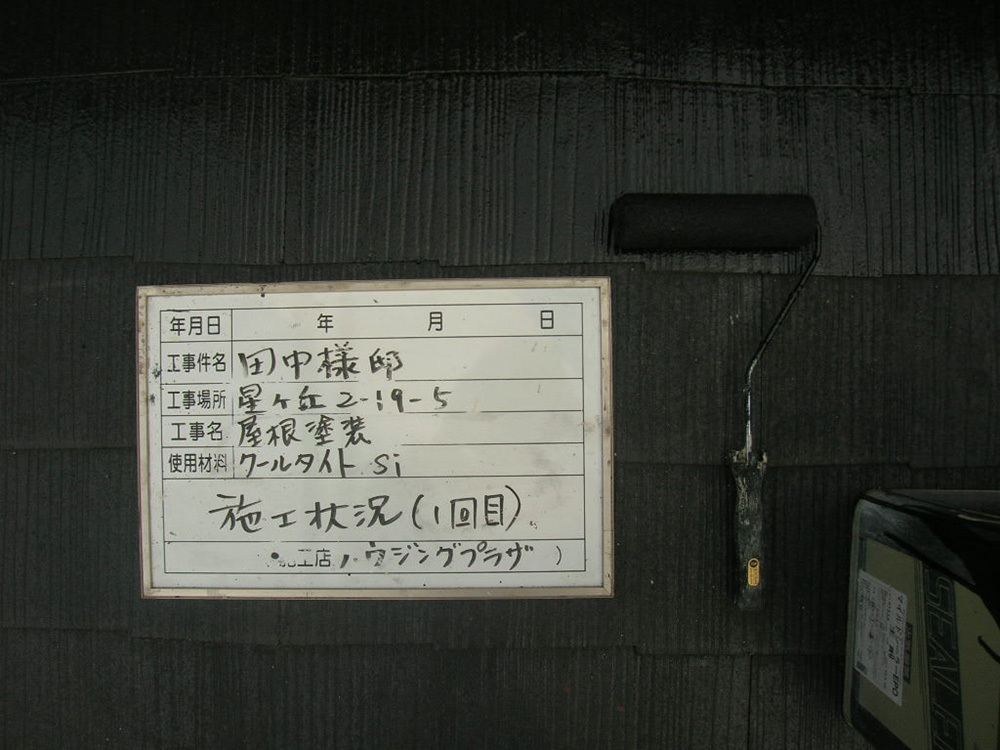 年月日 年 月 日
工事件名 田中様邸
工事場所 星ヶ丘2-19-5
工事名 屋根塗装
使用材料 クールタイト Si
施工状況(1回目)
施工店 ハウジングプラザ )
マイルドシーラーEPO
SEALE